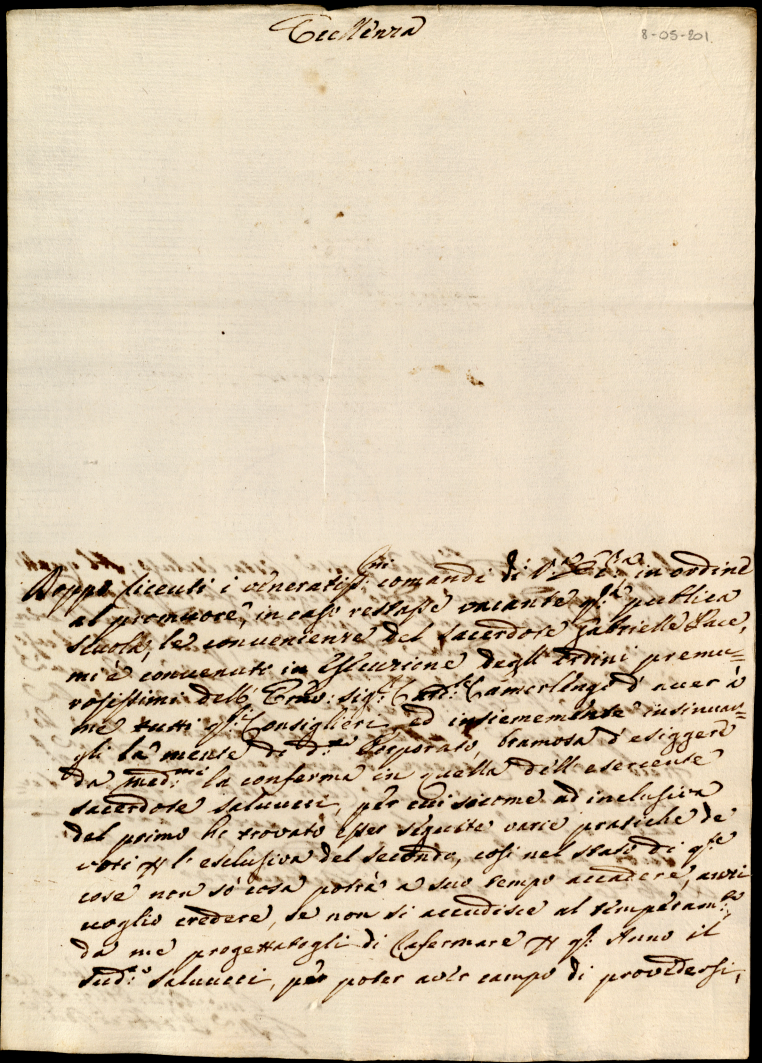 Eccellenza
8-05-201
Doppo ricevuti i veneratiss.mi comandi di V.ra Ecc.za in ordine
al promuovere, in caso restasse vacante q.sta publica
scuola, le convenienze del sacerdote Gabrielle Pace,
mi è convenuto in esecuzione degli ordini premu=
rosissimi dell' Em̃o: Sig.r Card.le Camerlengo d'aver à
me tutti q.sti Consiglieri, ed insiememente insinuar=
gli la mente di d.to Porporato, bramosa d'esiggere
da med.mi la conferma in quella dell' esercente
sacerdote Salvucci, per cui sicome ad inclusiva
del primo hò trovato esser seguite varie pratiche de
voti p l'esclusiva del secondo, così nel stato di q.ste
cose non sò cosa potrà a suo tempo accadere, anzi
voglio credere, se non si accudisce al temperam.to
da me progettatogli di Cofermare p q.st' Anno il
sud.to Salvucci, per poter aver campo di providersi,